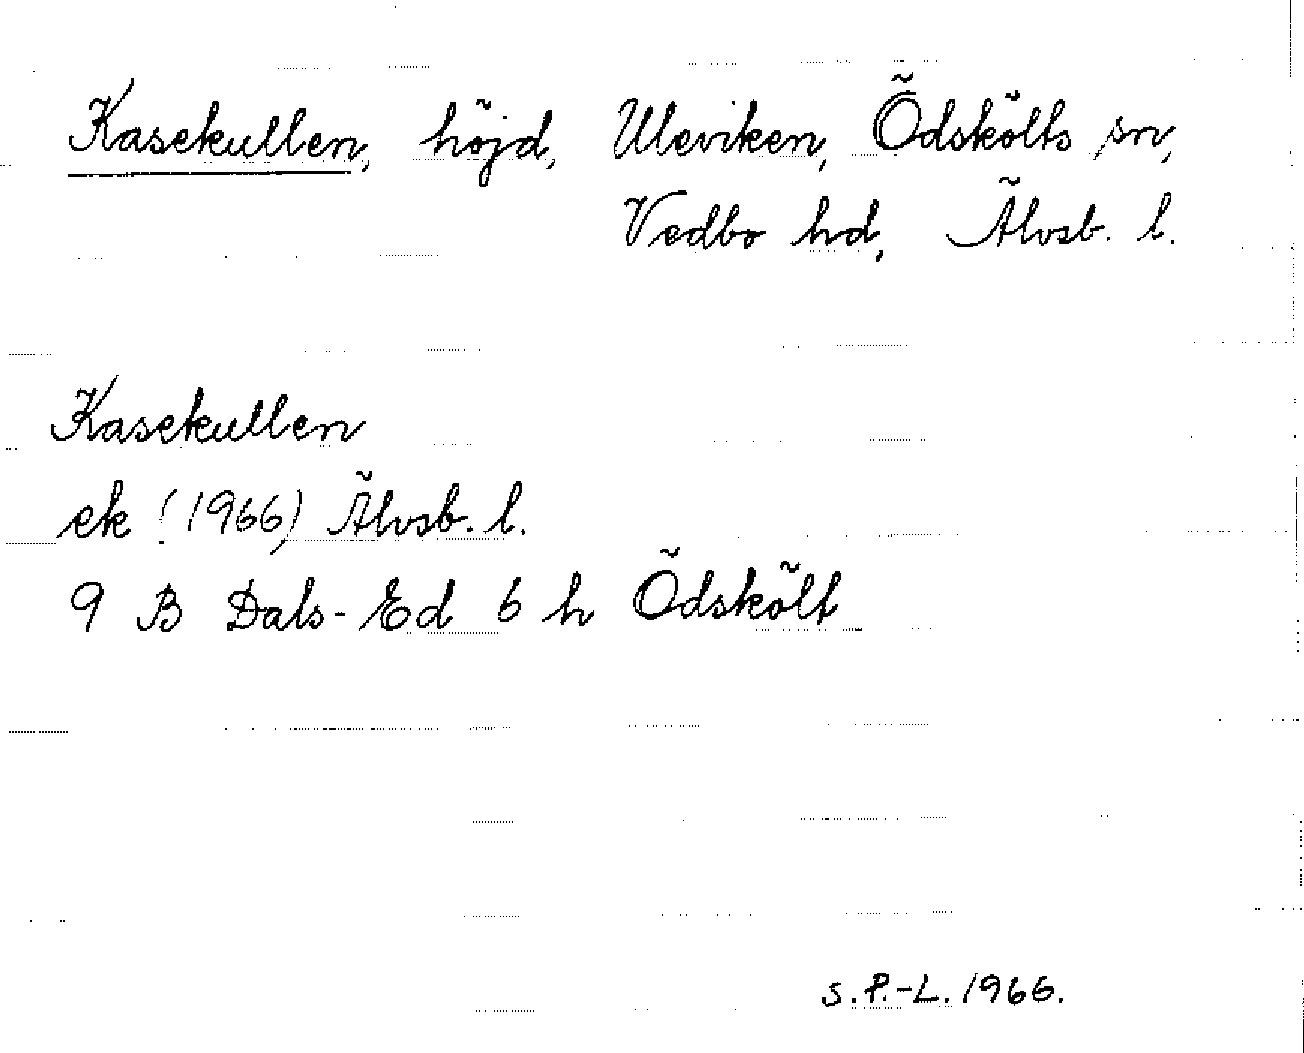 Kasekullen, höjd, Uleviken, Ödskölts sn,
Vedbo hd, Älvsb. l.
Kasekullen
ek (1966) Älvsb. l.
9 B Dals-Ed 6 h Ödskölt
S.P.-L. 1966.